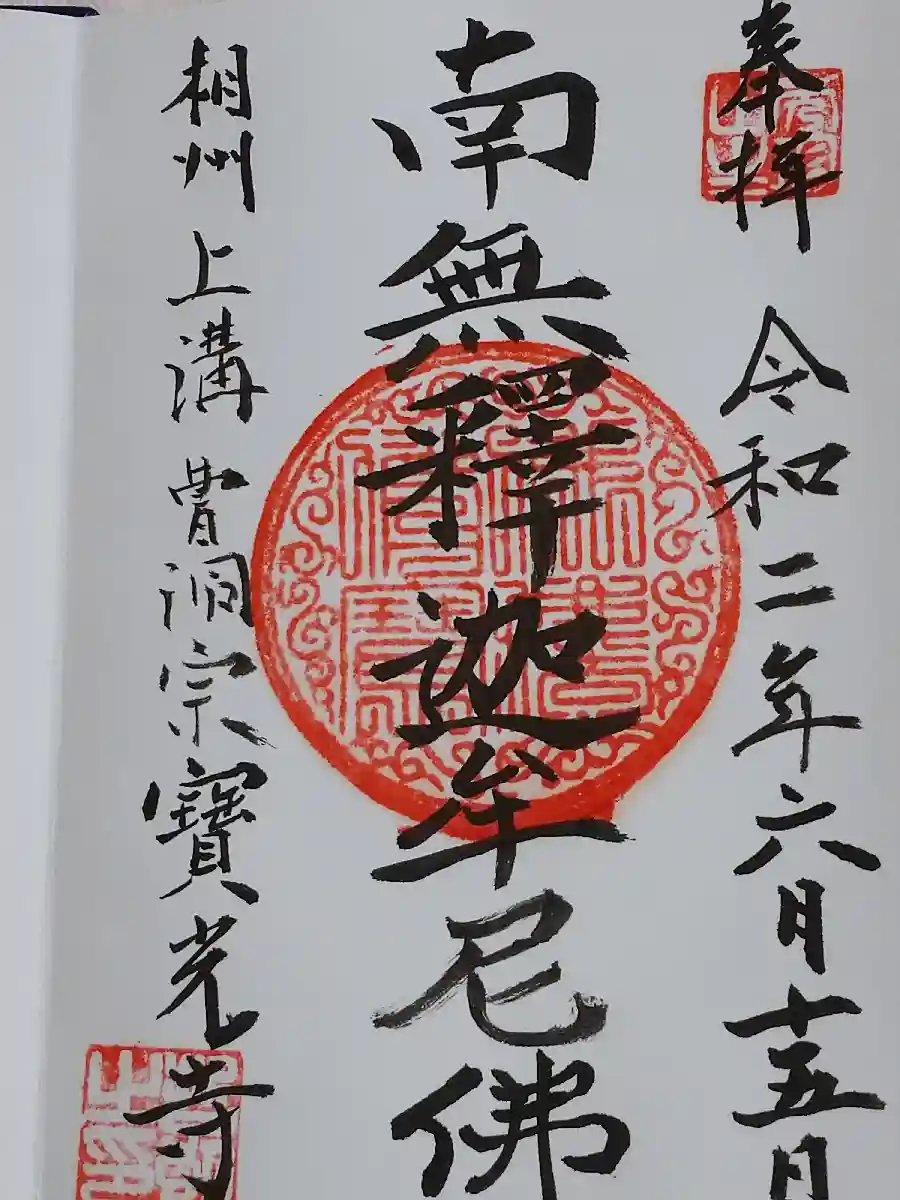 奉拝 令和二年六月十五日
南無釋迦牟尼佛
相州上溝 曹洞宗寶光寺